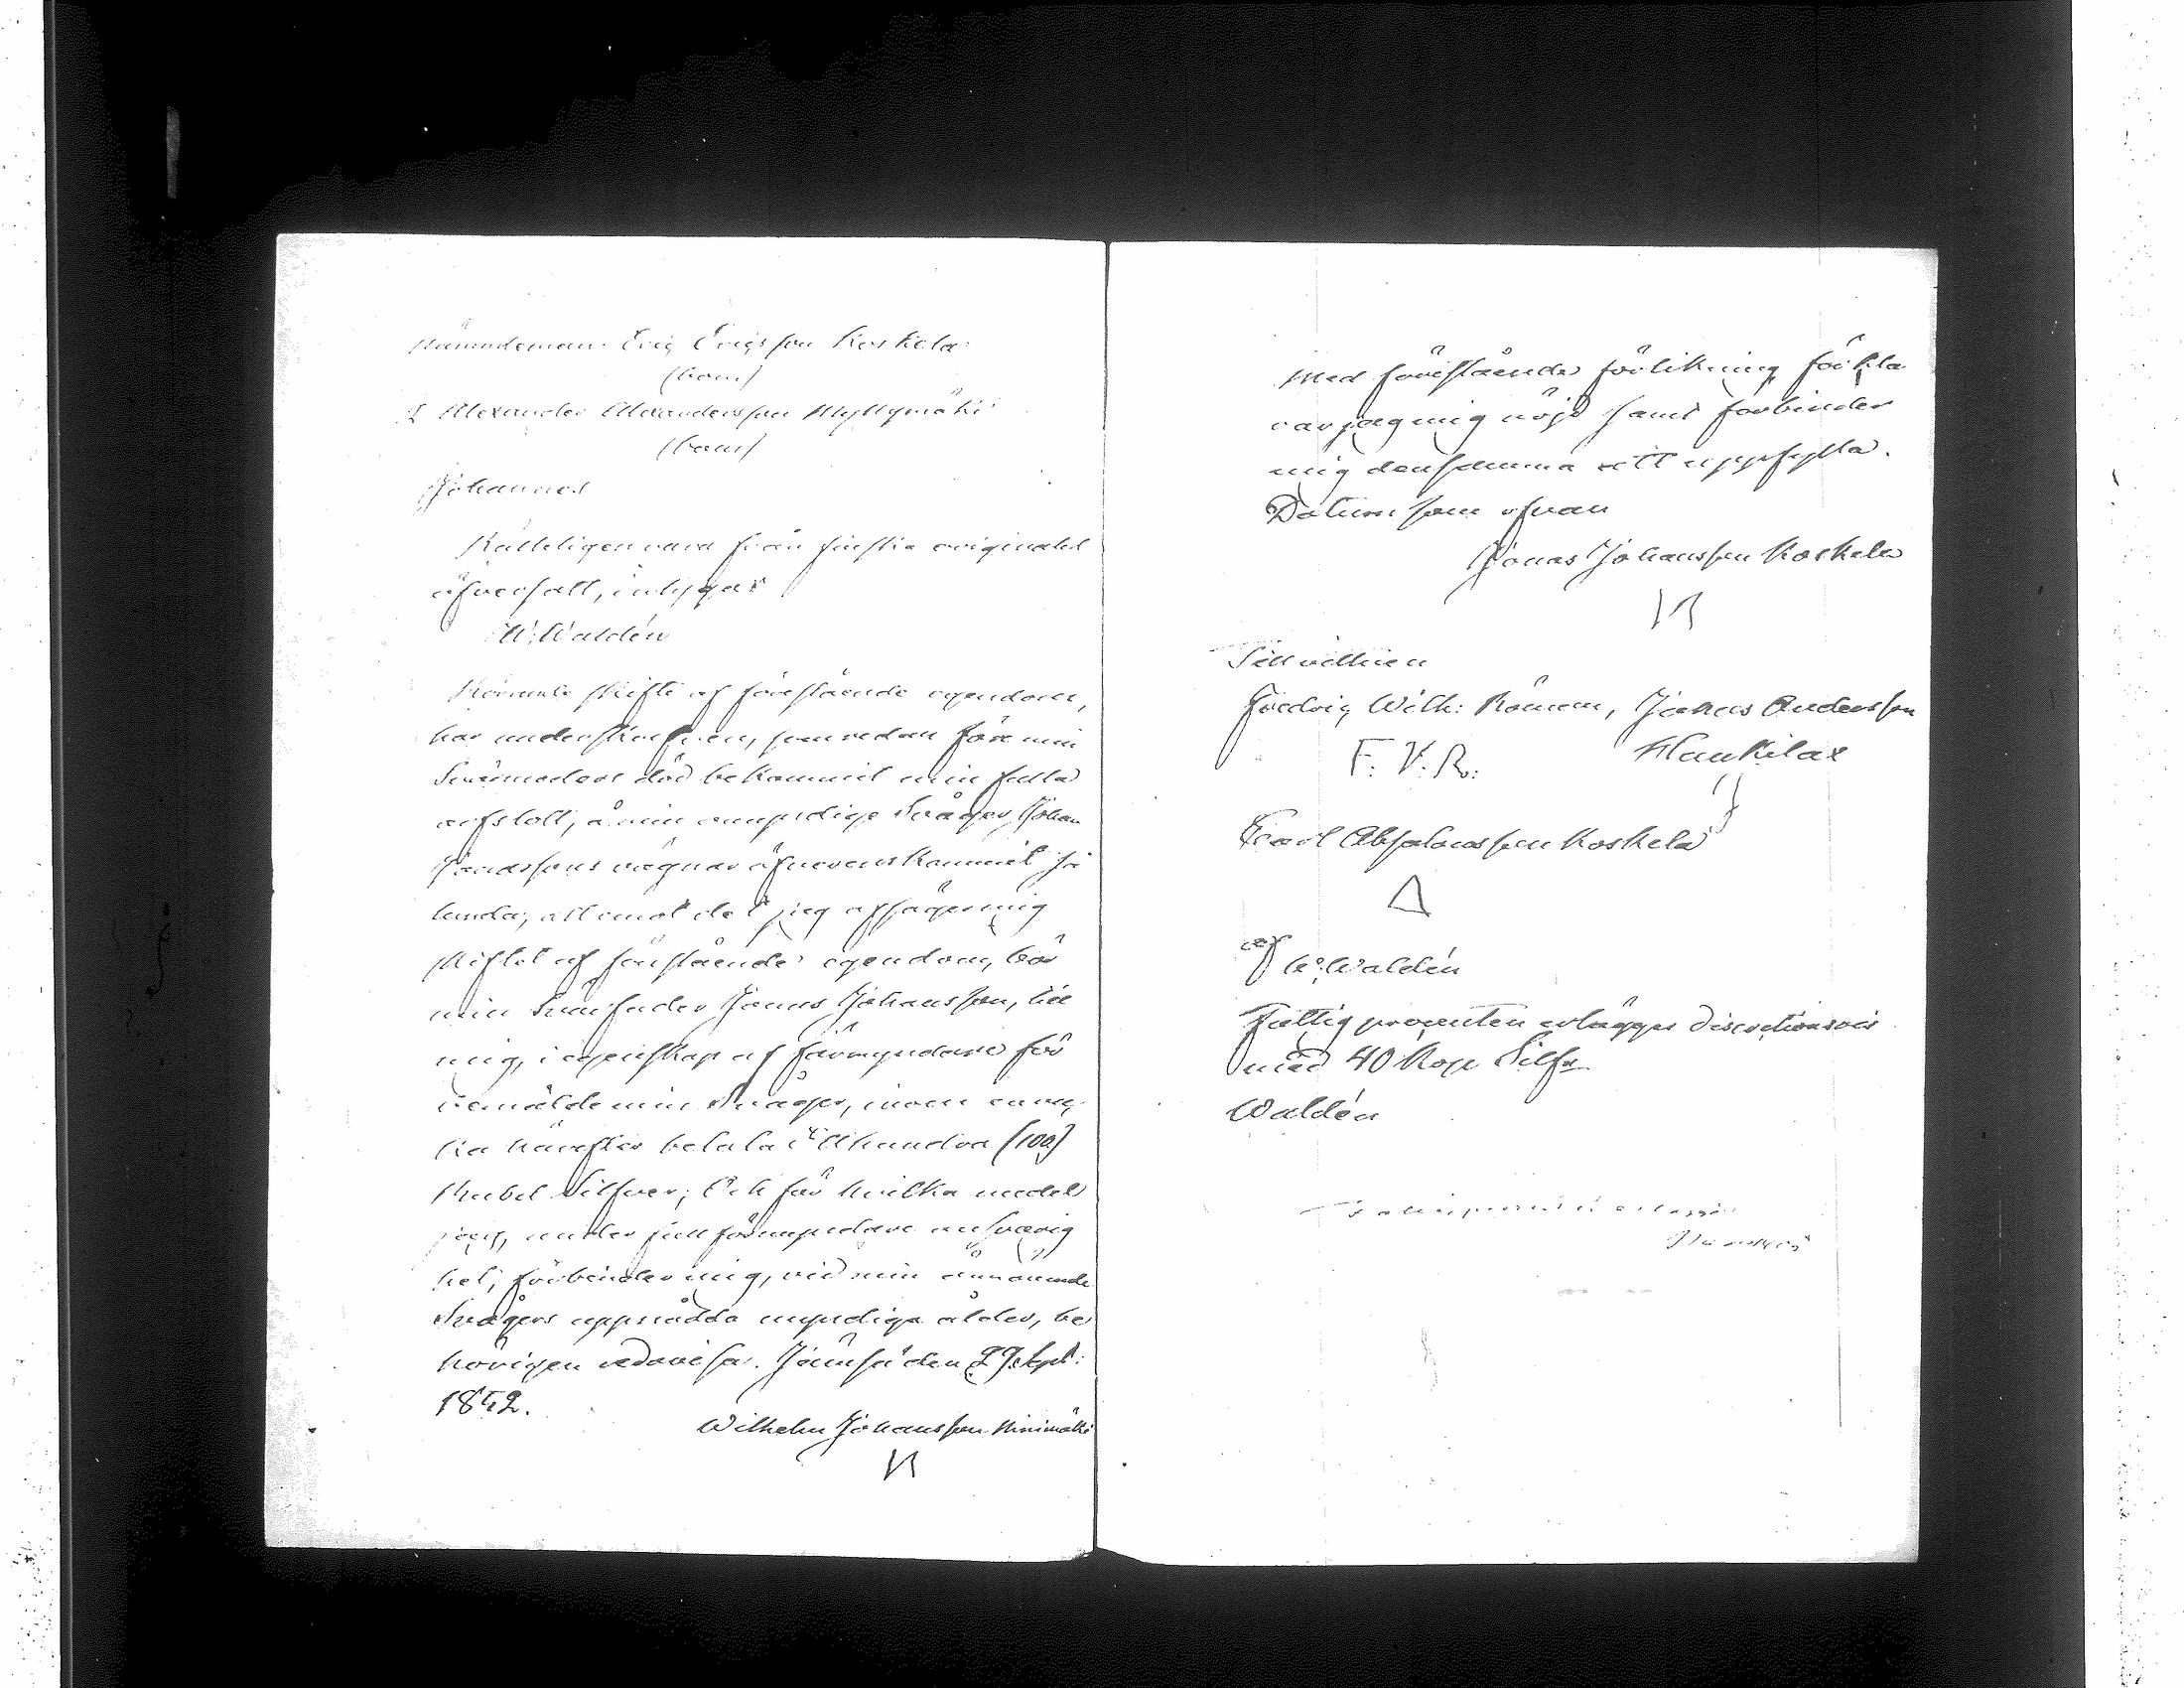 Nämndeman Eric Ericsson Koskela
(bom)
& Alexander Alexandersson Myllymäki
(bom)
Johannes
Rätteligen vara från finska originalet
öfversatt, intygar
W. Waldén
Rörande skifte af förestående egendom,
har underskrefven, som redan före min
Svärmoders död bekommit min fulla
arfslott, å min omyndige Svåger Johan
Jonassons vägnar öfverenskommit så
lunda, att emot det jag afsäger mig
skiftet af förestående egendom, bör
min Svärfader Jonas Johansson, till
mig, i egenskap af förmyndare för
bemälde min Svåger, inom en vec
ka härefter betala Etthundra (100)
Rubel Silfver; Och för hvilka medel
jag, under full förmyndare ansvarig
het, förbinder mig, vid min ännämnde
Svågers uppnådda myndiga ålder, be
hörigen redovisa. Jämsä den 29 Sept:
1842.
Wilhelm Johansson Kinimäki
Med förestående förlikning förkla
rar jag mig nöjd samt förbinder
mig densamma att uppfylla.
Datum som ofvan
Jonas Johansson Koskela
Till vittnen
Fredric Wilh: Romem, Johans Andersson
F. V. R. Haukilax
Carl Absalonsson Koskela
af W. Waldén
Fattig procenten erlägges discretionsvis
med 40 Kop Silfr
Waldén